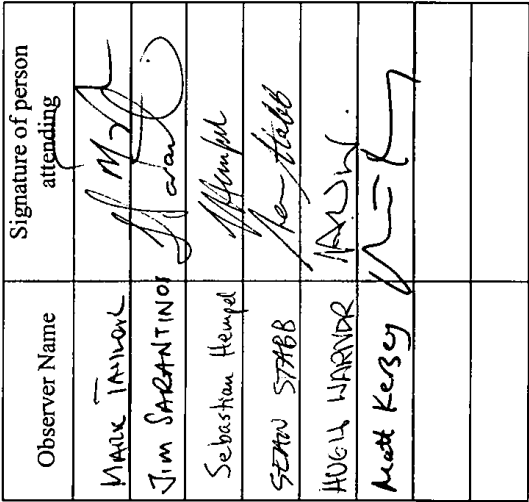 Observer Name
Signature of person
attending
MARK TAYLOR
JIM SARANTINOS
Sebastian Hempel
Hempel
SEAN STABB
Sean Stabb
HUGH WARNDR
Matt Kersey